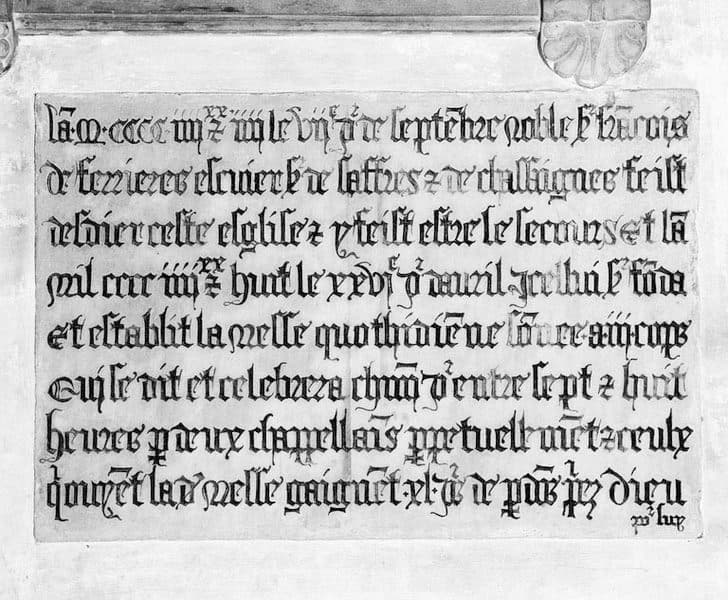 lā · m · cccc iiii xx z iiii le vii e jr de septēbre noble sr frācois
de ferrieres escuier sr de saffres z de chassaignes feist
desdier ceste esglise z y feist estre le secours Et lā
mil cccc iiii xx z huit le xxvi e jr dauril Jcellui sr fōda
Et establit la messe quothidiēne sōnee a iiii cops
Qui se dit et celebrera chūn jr entre sept z huit
heures p deux chappellais ppetuellemēt z ceulx
q ouyēt lad messe gaignēt · xl · jrs de pdōs priez dieu
pr eux